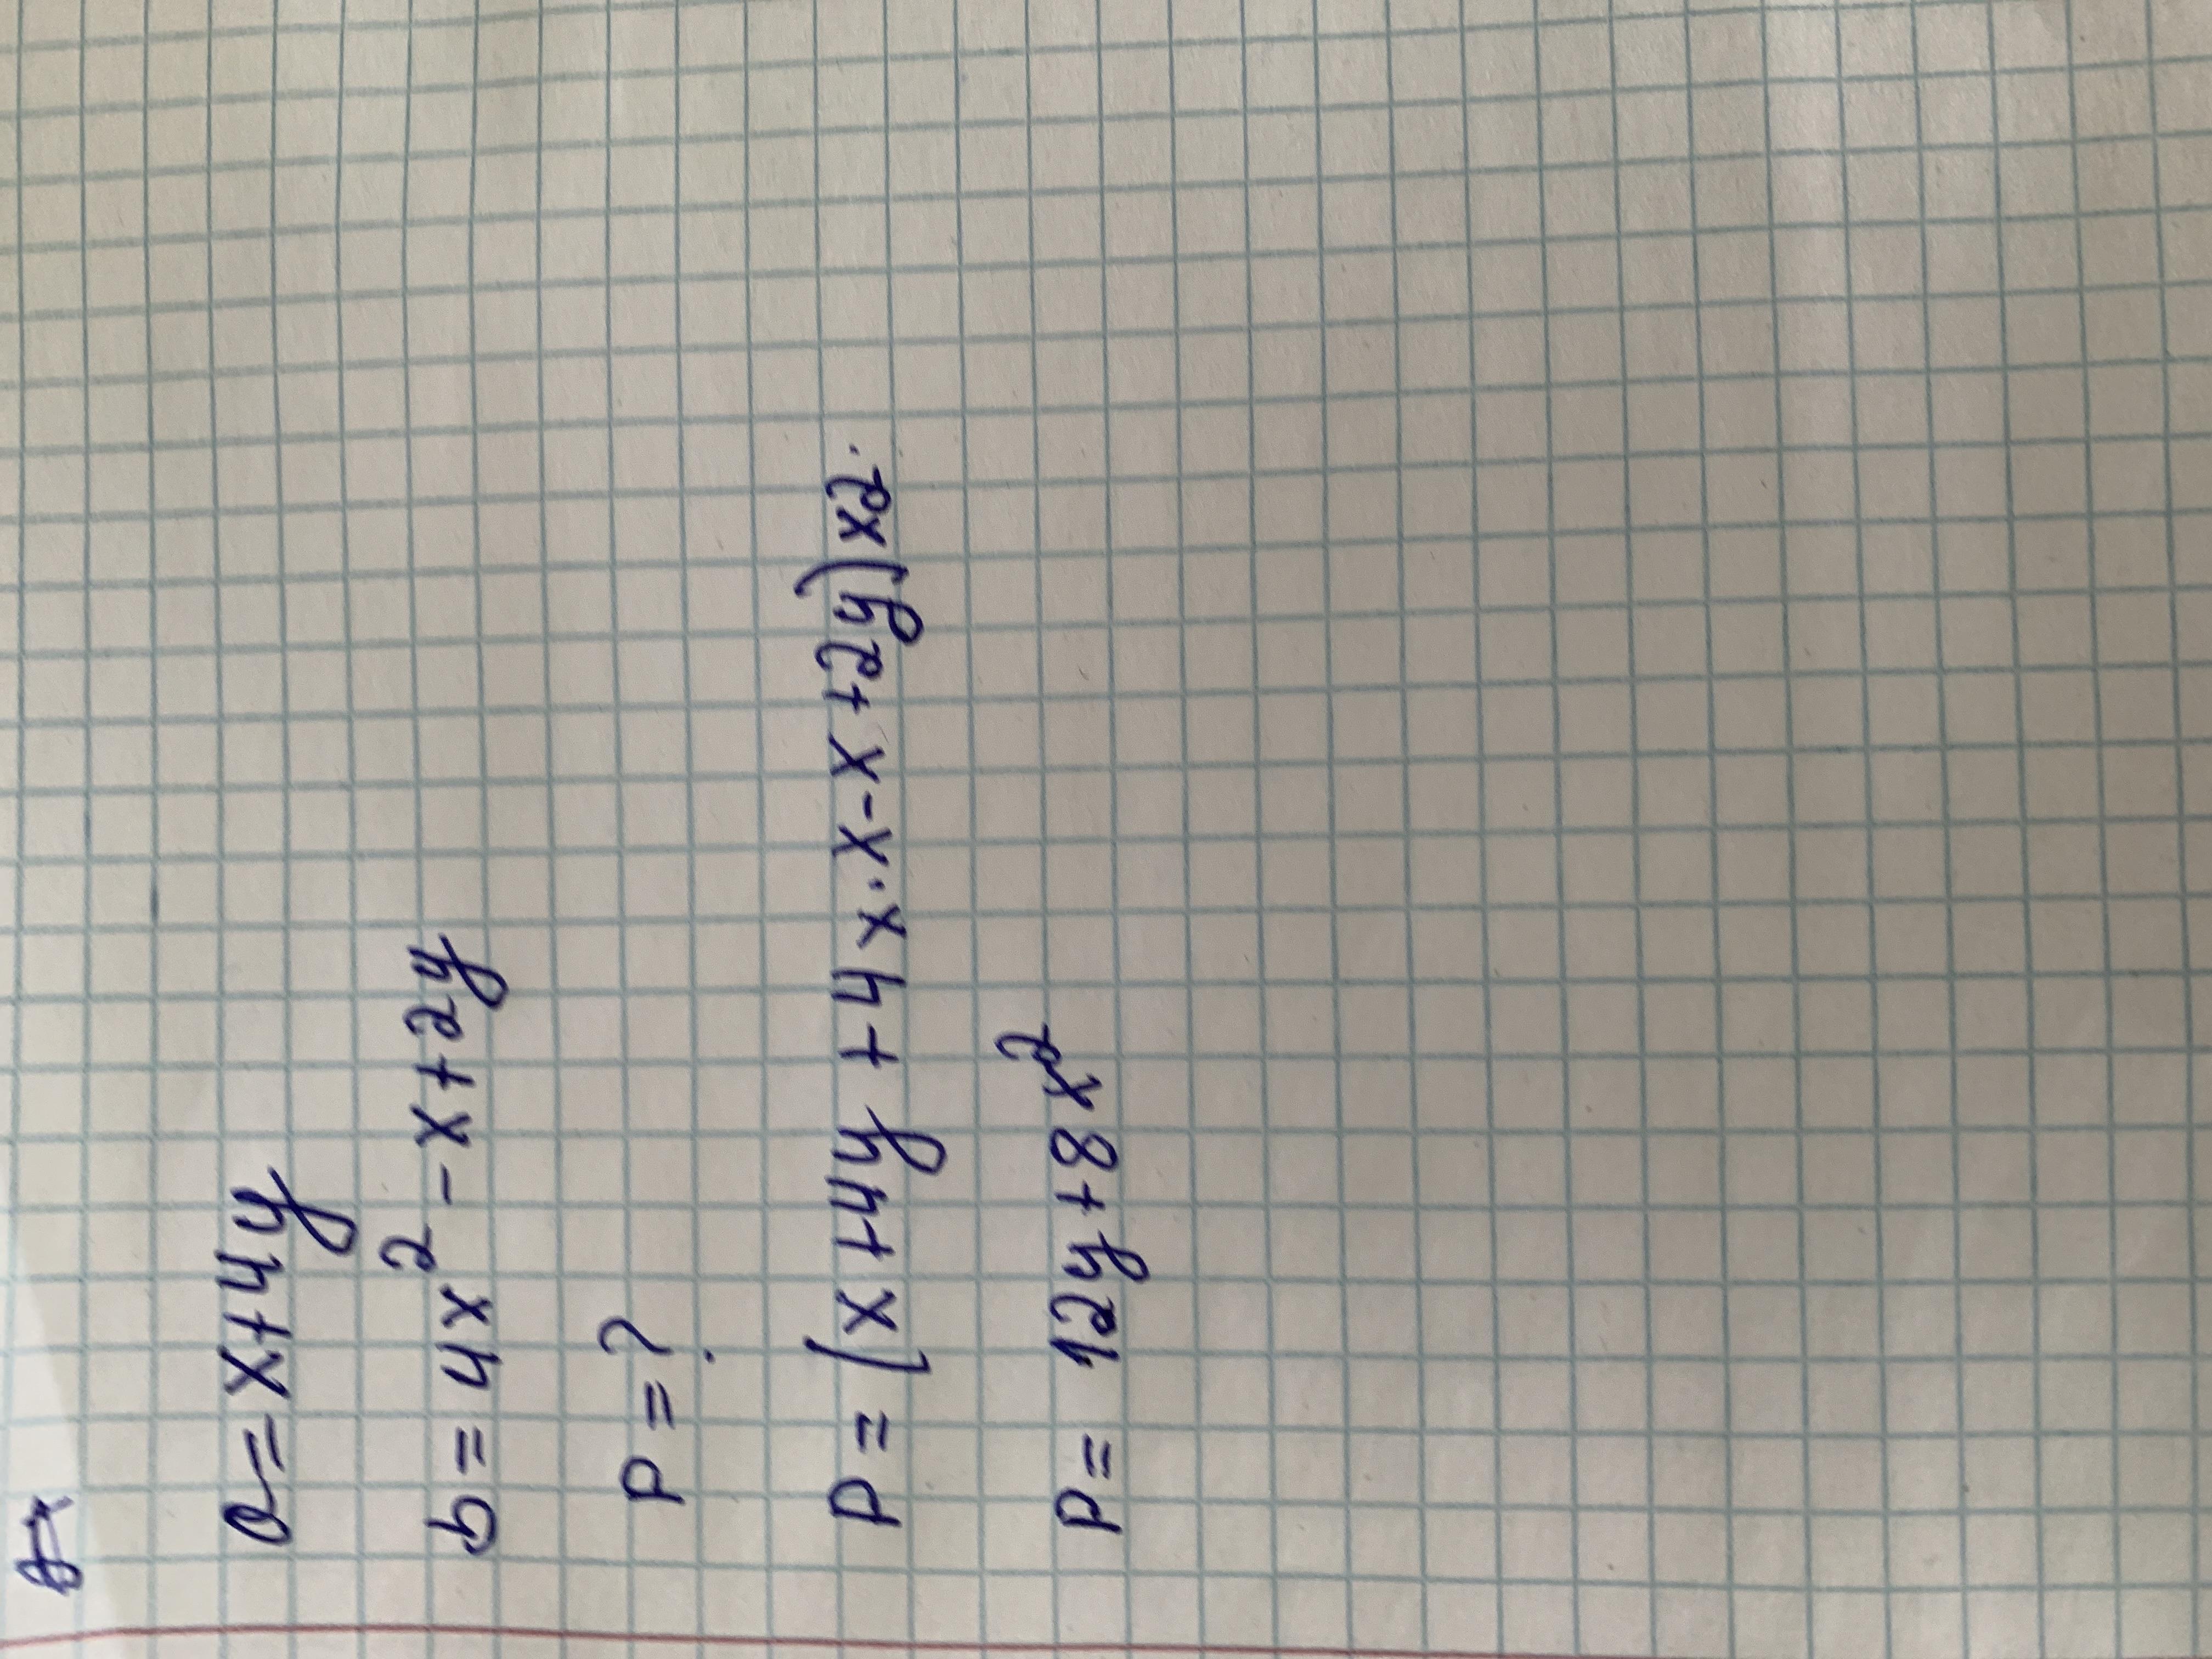 a = x + 4y
b = 4x² - x + 2y
P = ?
P = (x + 4y + 4x·x - x + 2y)x2.
P = 12y + 8x²